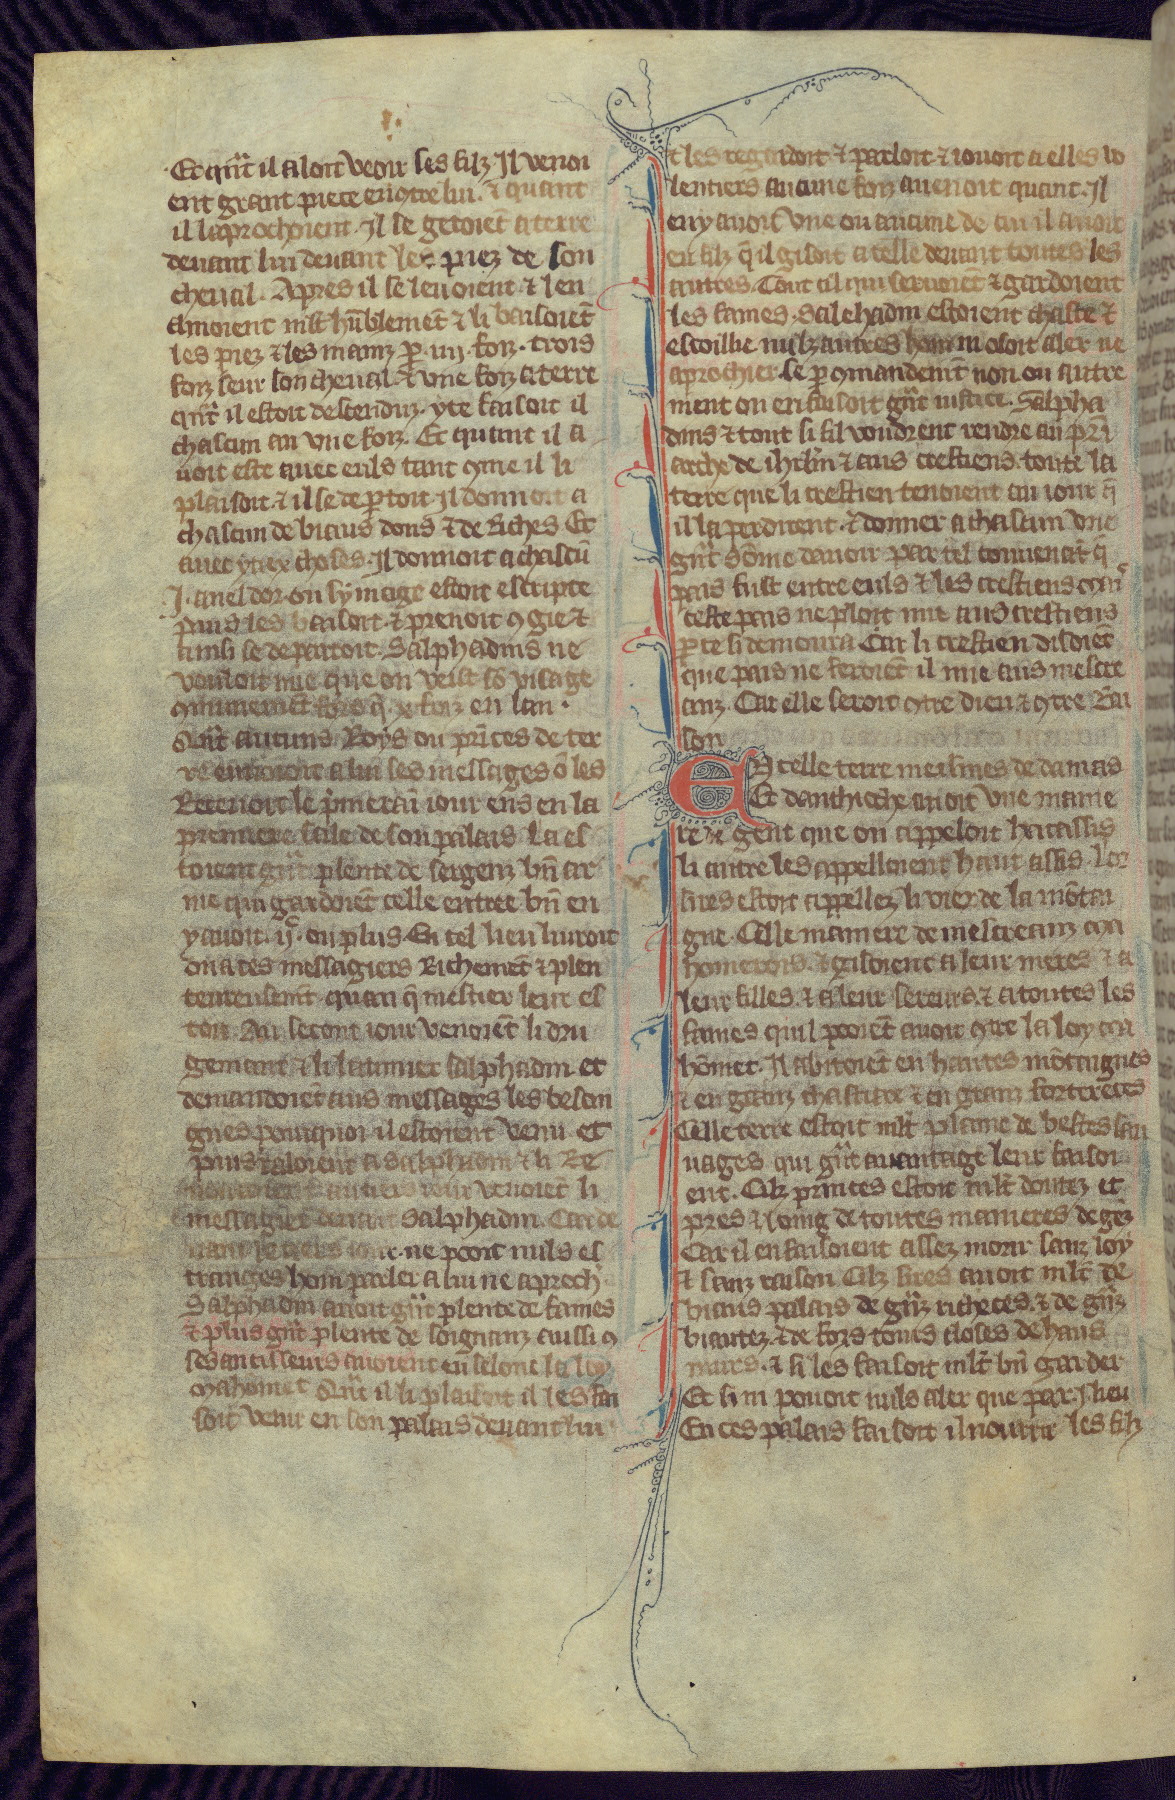 Et qñt il aloit veoir ses filz Il venoi
ent grant piece encõtre lui. & quant
il laprochoient. Il se getoiẽt a terre
deuant lui deuant les piez de son
cheual. Apres il se leuoient & len
clinoient mlt hũblemẽt & li baisoiẽt
les piez & les mainz ꝑ .iiij. foiz. trois
foiz seur son cheual & vne foiz a terre
qñt il estoit descenduz. yce faisoit il
chascun an vne foiz. Et quant il a
uoit este auec euls tant ꝯme il li
plaisoit. & il se deꝑtoit. Il donnoit a
chascun de biaus dons & de riches Et
auec ytex choses. Il donnoit a chascũ
.I. anel dor. ou lymage estoit escripte
puis les baisoit. & prenoit ꝯgie &
ainsi se departoit. Salphadins ne
vouloit mie que on veist sõ visage
ꝯmunemẽt fors q̃ .x. foiz en lan.
Qñt aucuns Roys ou prĩces de ter
re enuoioit a lui ses messages õ les
Receuoit le pmerai iour ens en la
premiere sale de son palais La es
toient gñt plente de sergenz bñ ar
me qui gardoiẽt celle entree bñ en
y auoit .ijᶜ. ou plus. En tel lieu liuroit
on a ces messagiers Richemẽt & plen
teureusemẽt quan q̃ mestier leur es
toit. Au secont iour venoiẽt li dru
gement & li latimier salphadin et
demandoiẽt aus messages les besoin
gnes pourquoi il estoient venu et
puis raloient a salphadin & li Re
venoiẽt li
messagier deuant Salphadin. Car de
ne pooit nuls es
tranges hom parler a lui ne aproch̾
Salphadin auoit gñt plente de fames
& plus gñt plente de soignanz aussi ꝯ
ses antisseurs auoient eu selonc la loy
Mahomet Qñt il li plaisoit il les fai
soit venir en son palais deuant lui
& les regardoit & parloit & iouoit a elles vo
lentiers aucune foiz auenoit quant. Il
en y auoit vne ou aucune de cui il auoit
eu filz q̃ il gisoit a celle deuant toutes les
autres. Tout cil qui seruoiẽt & gardoient
les fames. Salehadin estoient chaste &
escoillie nulz autres hom ni osoit aler ne
aprochier. se ꝑ ꝯmandemẽt non ou autre
ment on en faisoit gñt iustice. Salpha
dins & tout si fil voudrent rendre au pr̃i
arche de ihrl̃m & aus crestiens. toute la
terre que li crestien tenoient au iour q̃
il la perdirent. & donner a chascun vne
gñt sõme dauoir par tel conuenãt q̃
pais fust entre euls & les crestiens
ceste pais ne plot mie aus crestiens
ꝑ ce si demoura Car li crestien disoiẽt
que pais ne feroiẽt il mie aus mescre
anz. Car elle seroit ꝯtre dieu & ꝯtre Rai
son
En celle terre meismes de damas
Et danthioche auoit vne manie
re de gent que on appeloit hacassis
li autre les appelloient haut assis. Lor
sires estoit appellez li viex de la mõtai
gne. Celle maniere de mescreanz ma
homerois. & gisoient a leur meres & a
leur filles. & a leur sereurs. & a toutes les
fames quil pooiẽt auoir ꝯtre la loy ma
hõmet. Il abitoiẽt en hautes mõtaignes
& en granz chastiax & en granz forterẽces
Celle terre estoit mlt plaine de bestes sau
uages qui gñt auantage leur faisoi
ent. Cilz princes estoit mlt doutez et
pres & loing de toutes manieres de gẽz
Car il en faisoient assez morir sanz loy
& sanz raison Cilz sires auoit mlt de
biaus palais de gñz richeces. & de gñz
biautez. & de fors tours closes de haus
murs. & si les faisoit mlt bñ garder
Et si ni pouoit nuls aler que par .I. lieu
En ces palais faisoit il nourrir les filz